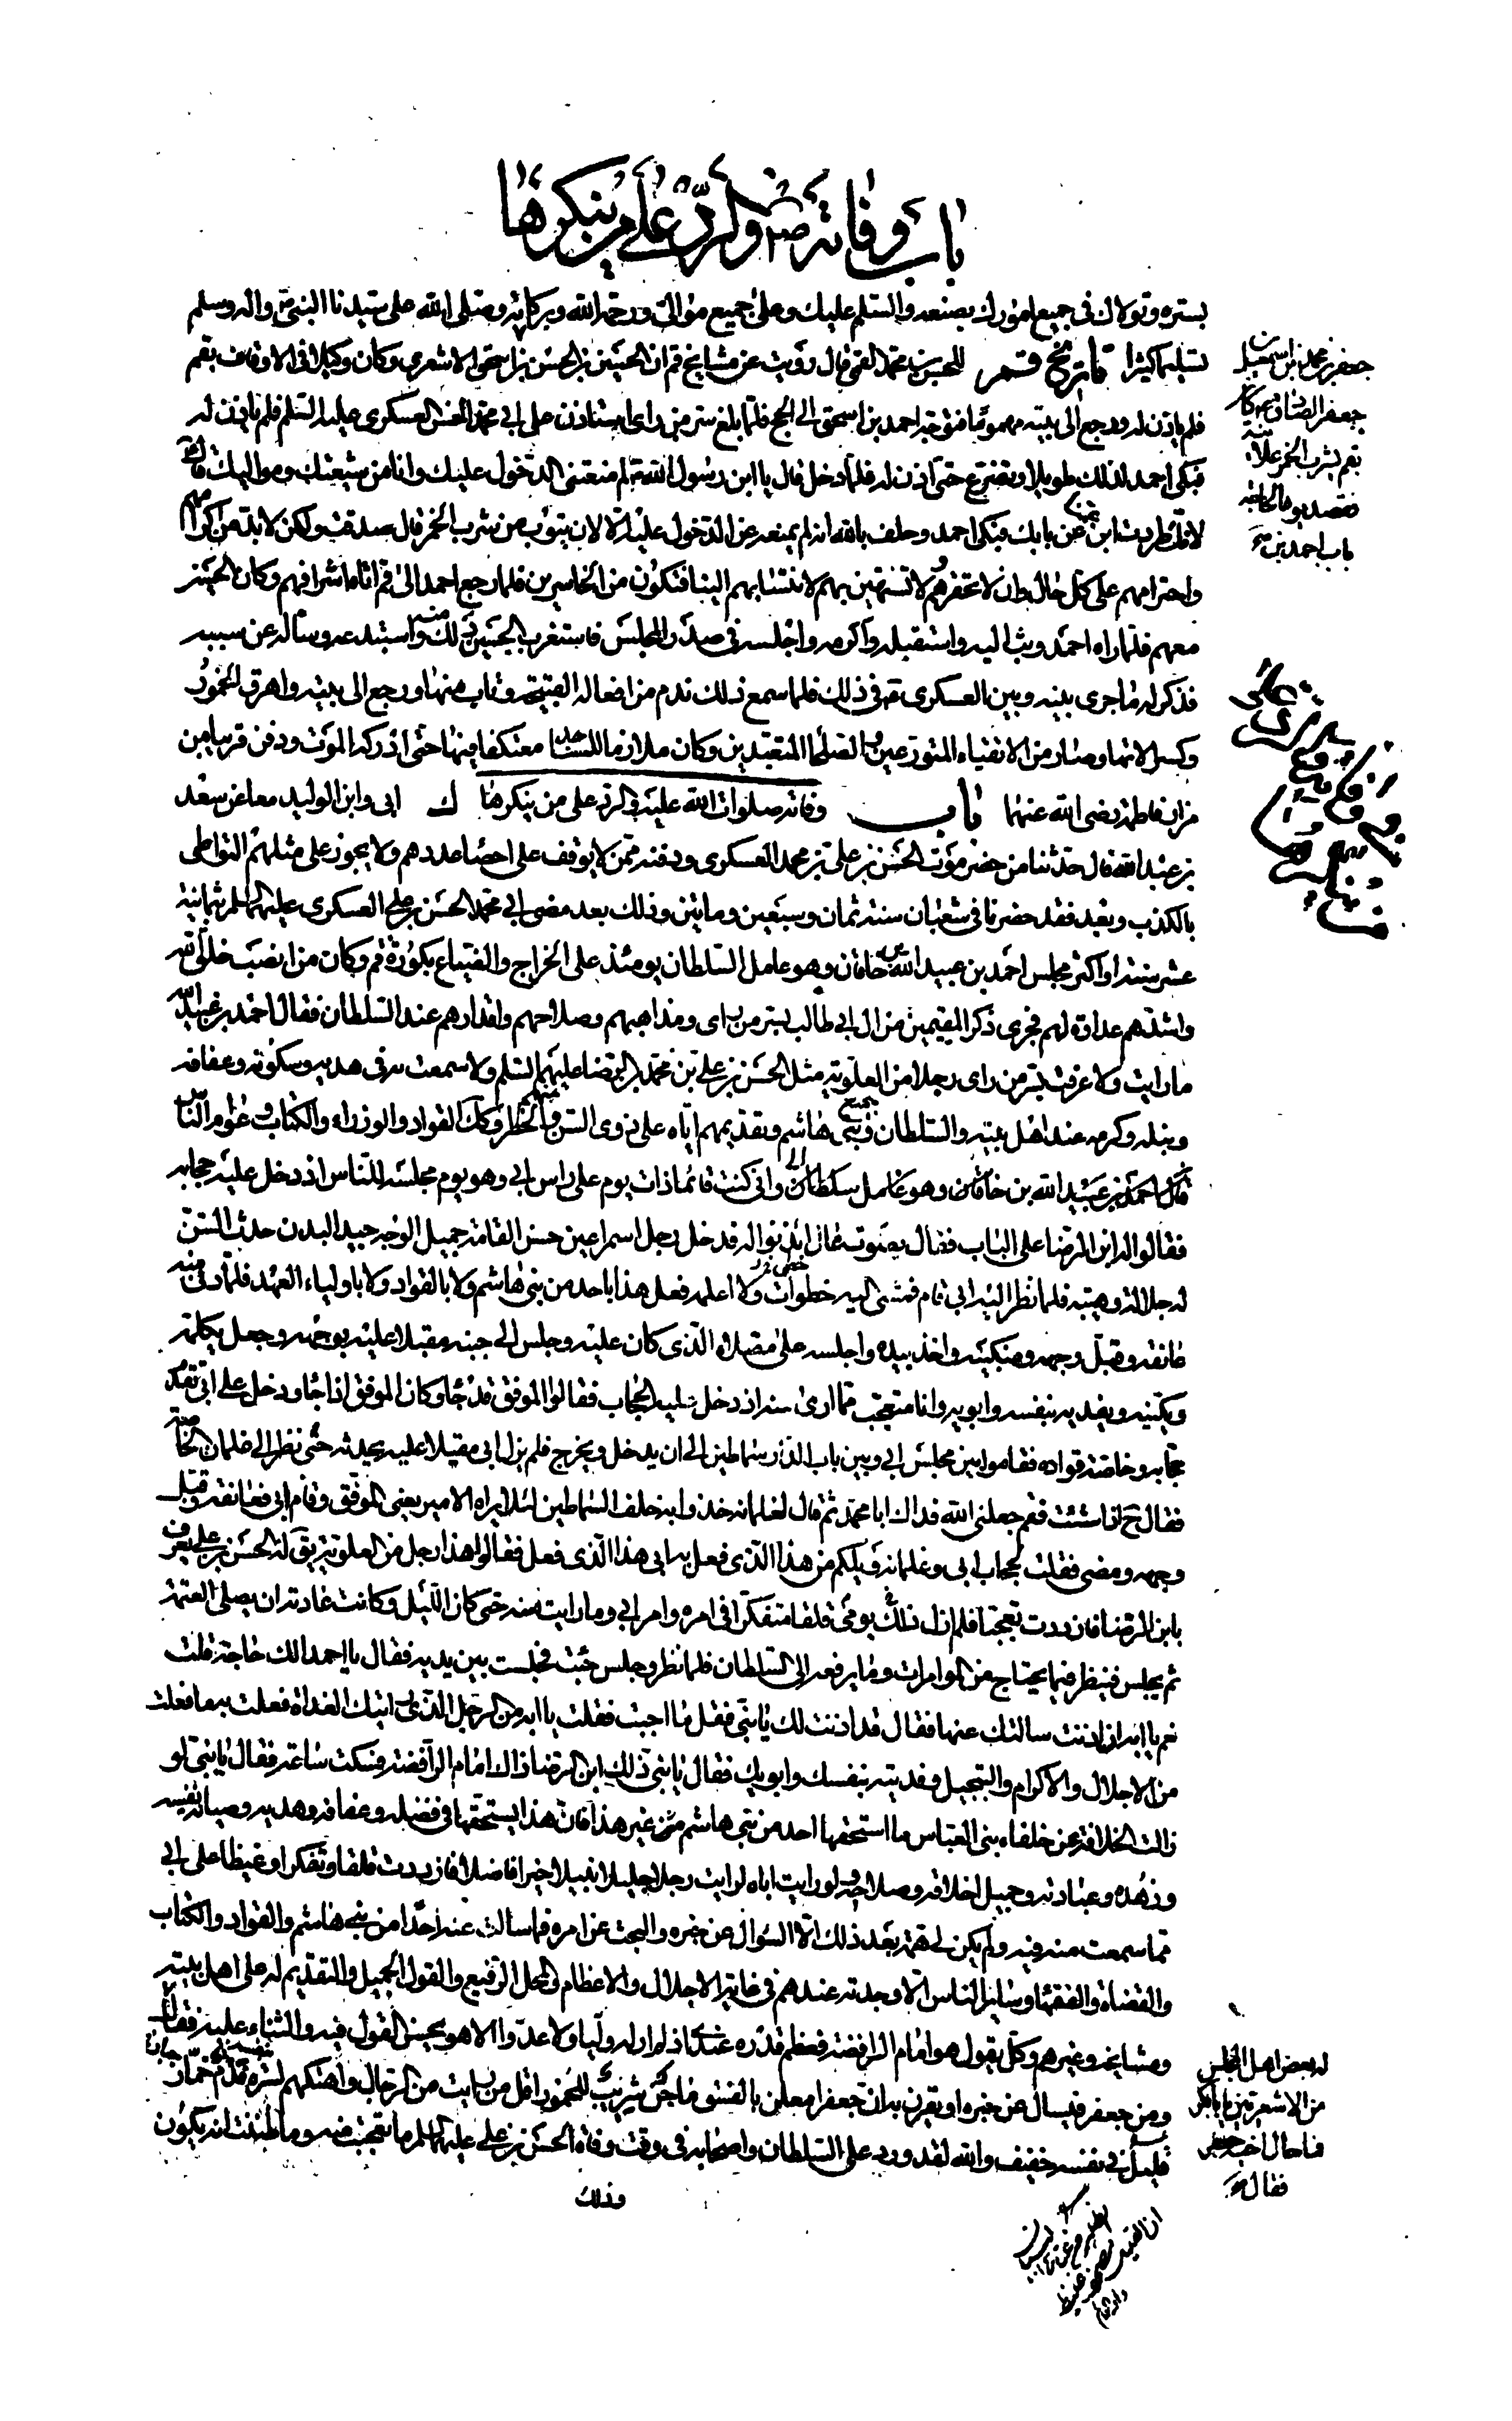 باب وفاته ص والرد على من ينكرها
بستره وتولاك في جميع امورك بصنعه والسلم عليك وعلى جميع موالي ورحمة الله وبركاته وصلى الله على سيدنا النبي واله وسلم
تسليما كثيرا تاريخ قم للحسن بن محمد القمي قال رويت عن مشايخ قم ان الحسين بن الحسن بن جعفر بن محمد بن اسمعيل بن جعفر الصادق كان بقم يشرب الخمر علانية فقصد يوما لحاجة باب احمد بن اسحق الاشعري وكان وكيلا في الاوقاف بقم
فلم ياذن له ورجع الى بيته مهموما فتوجه احمد بن اسحق الى الحج فلما بلغ سر من راى استاذن على ابي محمد الحسن العسكري عليه السلم فلم ياذن له
فبكى احمد لذلك طويلا وتضرع حتى اذن له فلما دخل قال يا ابن رسول الله لم منعتني الدخول عليك وانا من شيعتك ومواليك قال
لانك طردت ابن عمنا عن بابك فبكى احمد وحلف بالله انه لم يمنعه عن الدخول عليه الا لان يتوب من شرب الخمر قال صدقت ولكن لا بد من اكرامهم
واحترامهم على كل حال وان لا تحقرهم ولا تستهين بهم لانتسابهم الينا فتكون من الخاسرين فلما رجع احمد الى قم اتاه اشرافهم وكان الحسين
معهم فلما راه احمد وثب اليه واستقبله واكرمه واجلسه في صدر المجلس فاستغرب الحسين ذلك منه واستبدعه وساله عن سببه
فذكر له ما جرى بينه وبين العسكري في ذلك فلما سمع ذلك ندم من افعاله القبيحة وتاب منها ورجع الى بيته واهرق الخمور
وكسر الاتها وصار من الاتقياء المتورعين والصلحاء المتعبدين وكان ملازما للمساجد معتكفا فيها حتى ادركه الموت ودفن قريبا من
مزار فاطمة رضي الله عنهما باب وفاته صلوات الله عليه والرد على من ينكرها ك ابي وابن الوليد معا عن سعد
بن عبد الله قال حدثنا من حضر موت الحسن بن علي بن محمد العسكري ودفنه ممن لا يوقف على احصاء عددهم ولا يجوز على مثلهم التواطي
بالكذب وبعد فقد حضرنا في شعبان سنة ثمان وسبعين ومائتين وذلك بعد مضي ابي محمد الحسن بن علي العسكري عليهما السلم بثمانية
عشر سنة او اكثر مجلس احمد بن عبيد الله بن خاقان وهو عامل السلطان يومئذ على الخراج والضياع بكورة قم وكان من انصب خلق الله
واشدهم عداوة لهم فجرى ذكر المقيمين من ال ابي طالب بسر من راى ومذاهبهم وصلاحهم واقدارهم عند السلطان فقال احمد بن عبيد الله
ما رايت ولا عرفت بسر من راى رجلا من العلوية مثل الحسن بن علي بن محمد بن الرضا عليهم السلم ولا سمعت به في هديه وسكونه وعفافه
ونبله وكرمه عند اهل بيته والسلطان وجميع بني هاشم وتقديمهم اياه على ذوي السن منهم والخطر وكك القواد والوزراء والكتاب وعوام الناس
قال احمد بن عبيد الله بن خاقان وهو عامل سلطان واني كنت قائما ذات يوم على راس ابي وهو يوم مجلسه للناس اذ دخل عليه حجابه
فقالوا له ابن الرضا على الباب فقال بصوت عال ائذنوا له فدخل رجل اسمر اعين حسن القامة جميل الوجه جيد البدن حدث السن
له جلالة وهيبة فلما نظر اليه ابي قام فمشى اليه خطوات ولا اعلمه فعل هذا باحد من بني هاشم ولا بالقواد ولا باولياء العهد فلما دنى منه
عانقه وقبل وجهه ومنكبيه واخذ بيده واجلسه على مصلاه الذي كان عليه وجلس الى جنبه مقبلا عليه بوجهه وجعل يكلمه
ويكنيه ويفديه بنفسه وابويه وانا متعجب مما ارى منه اذ دخل عليه الحجاب فقالوا الموفق قد جاء وكان الموفق اذا جاء ودخل على ابي تقدم
حجابه وخاصة قواده فقاموا بين مجلس ابي وبين باب الدار سماطين الى ان يدخل ويخرج فلم يزل ابي مقبلا عليه يحدثه حتى نظر الى غلمان الخاصة
فقال ح اذا شئت فقم جعلني الله فداك ابا محمد ثم قال لغلمانه خذوا به خلف السماطين لئلا يراه الامير يعني الموفق وقام ابي فعانقه وقبل
وجهه ومضى فقلت لحجاب ابي وغلمانه ويلكم من هذا الذي فعل به ابي هذا الذي فعل فقالوا هذا رجل من العلوية يق له الحسن بن علي يعرف
بابن الرضا فازددت تعجبا فلم ازل ذلك يومي قلقا متفكرا في امره وامر ابي وما رايت منه حتى كان الليل وكانت عادته ان يصلي العتمة
ثم يجلس فينظر فيما يحتاج من الموامرات وما يرفعه الى السلطان فلما نظر وجلس جئت فجلست بين يديه فقال يا احمد الك حاجة قلت
نعم يا ابه ان اذنت سالتك عنها فقال قد اذنت لك يا بني فقل ما احببت فقلت يا ابه من الرجل الذي اتيك الغداة فعلت به ما فعلت
من الاجلال والاكرام والتبجيل وفديته بنفسك وابويك فقال يا بني ذلك ابن الرضا ذاك امام الرافضة فسكت ساعة فقال يا بني لو
زالت الخلافة عن خلفاء بني العباس ما استحقها احد من بني هاشم غير هذا فان هذا يستحقها في فضله وعفافه وهديه وصيانة نفسه
وزهده وعبادته وجميل اخلاقه وصلاحه ولو رايت اباه لرايت رجلا جليلا نبيلا خيرا فاضلا فازددت قلقا وتفكرا وغيظا على ابي
مما سمعت منه فيه ولم يكن لي همة بعد ذلك الا السؤال عن خبره والبحث عن امره فما سالت عنه احدا من بني هاشم والقواد والكتاب
والقضاة والفقهاء وسائر الناس الا وجدته عندهم في غاية الاجلال والاعظام والمحل الرفيع والقول الجميل والتقديم له على اهل بيته
ومشايخه وغيرهم وكل يقول هو امام الرافضة فعظم قدره عندي اذ لم ار له وليا ولا عدوا الا هو يحسن القول فيه والثناء عليه فقال
له بعض اهل المجلس
من الاشعريين يا با بكر
فما حال اخيه جعفر
فقال
ومن جعفر فيسال عن خبره او يقرن به ان جعفرا معلن بالفسق ماجن شريب للخمور اقل من رايت من الرجال واهتكهم لستره فدم خمار
قليل في نفسه خفيف والله لقد ورد على السلطان واصحابه في وقت وفاة الحسن بن علي عليهما السلم ما تعجبت منه وما ظننت انه يكون
وذلك